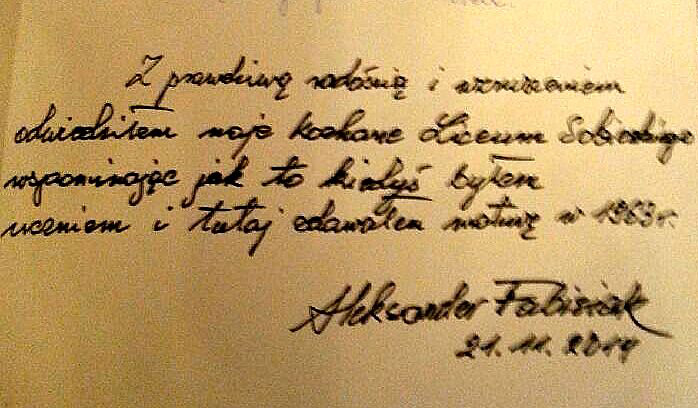 Z prawdziwą radością i wzruszeniem
odwiedziłem moje kochane Liceum Sobieskiego
wspominając jak to kiedyś byłem
uczniem i tutaj zdawałem maturę w 1963 r.
Aleksander Fabisiak
21.11.2014